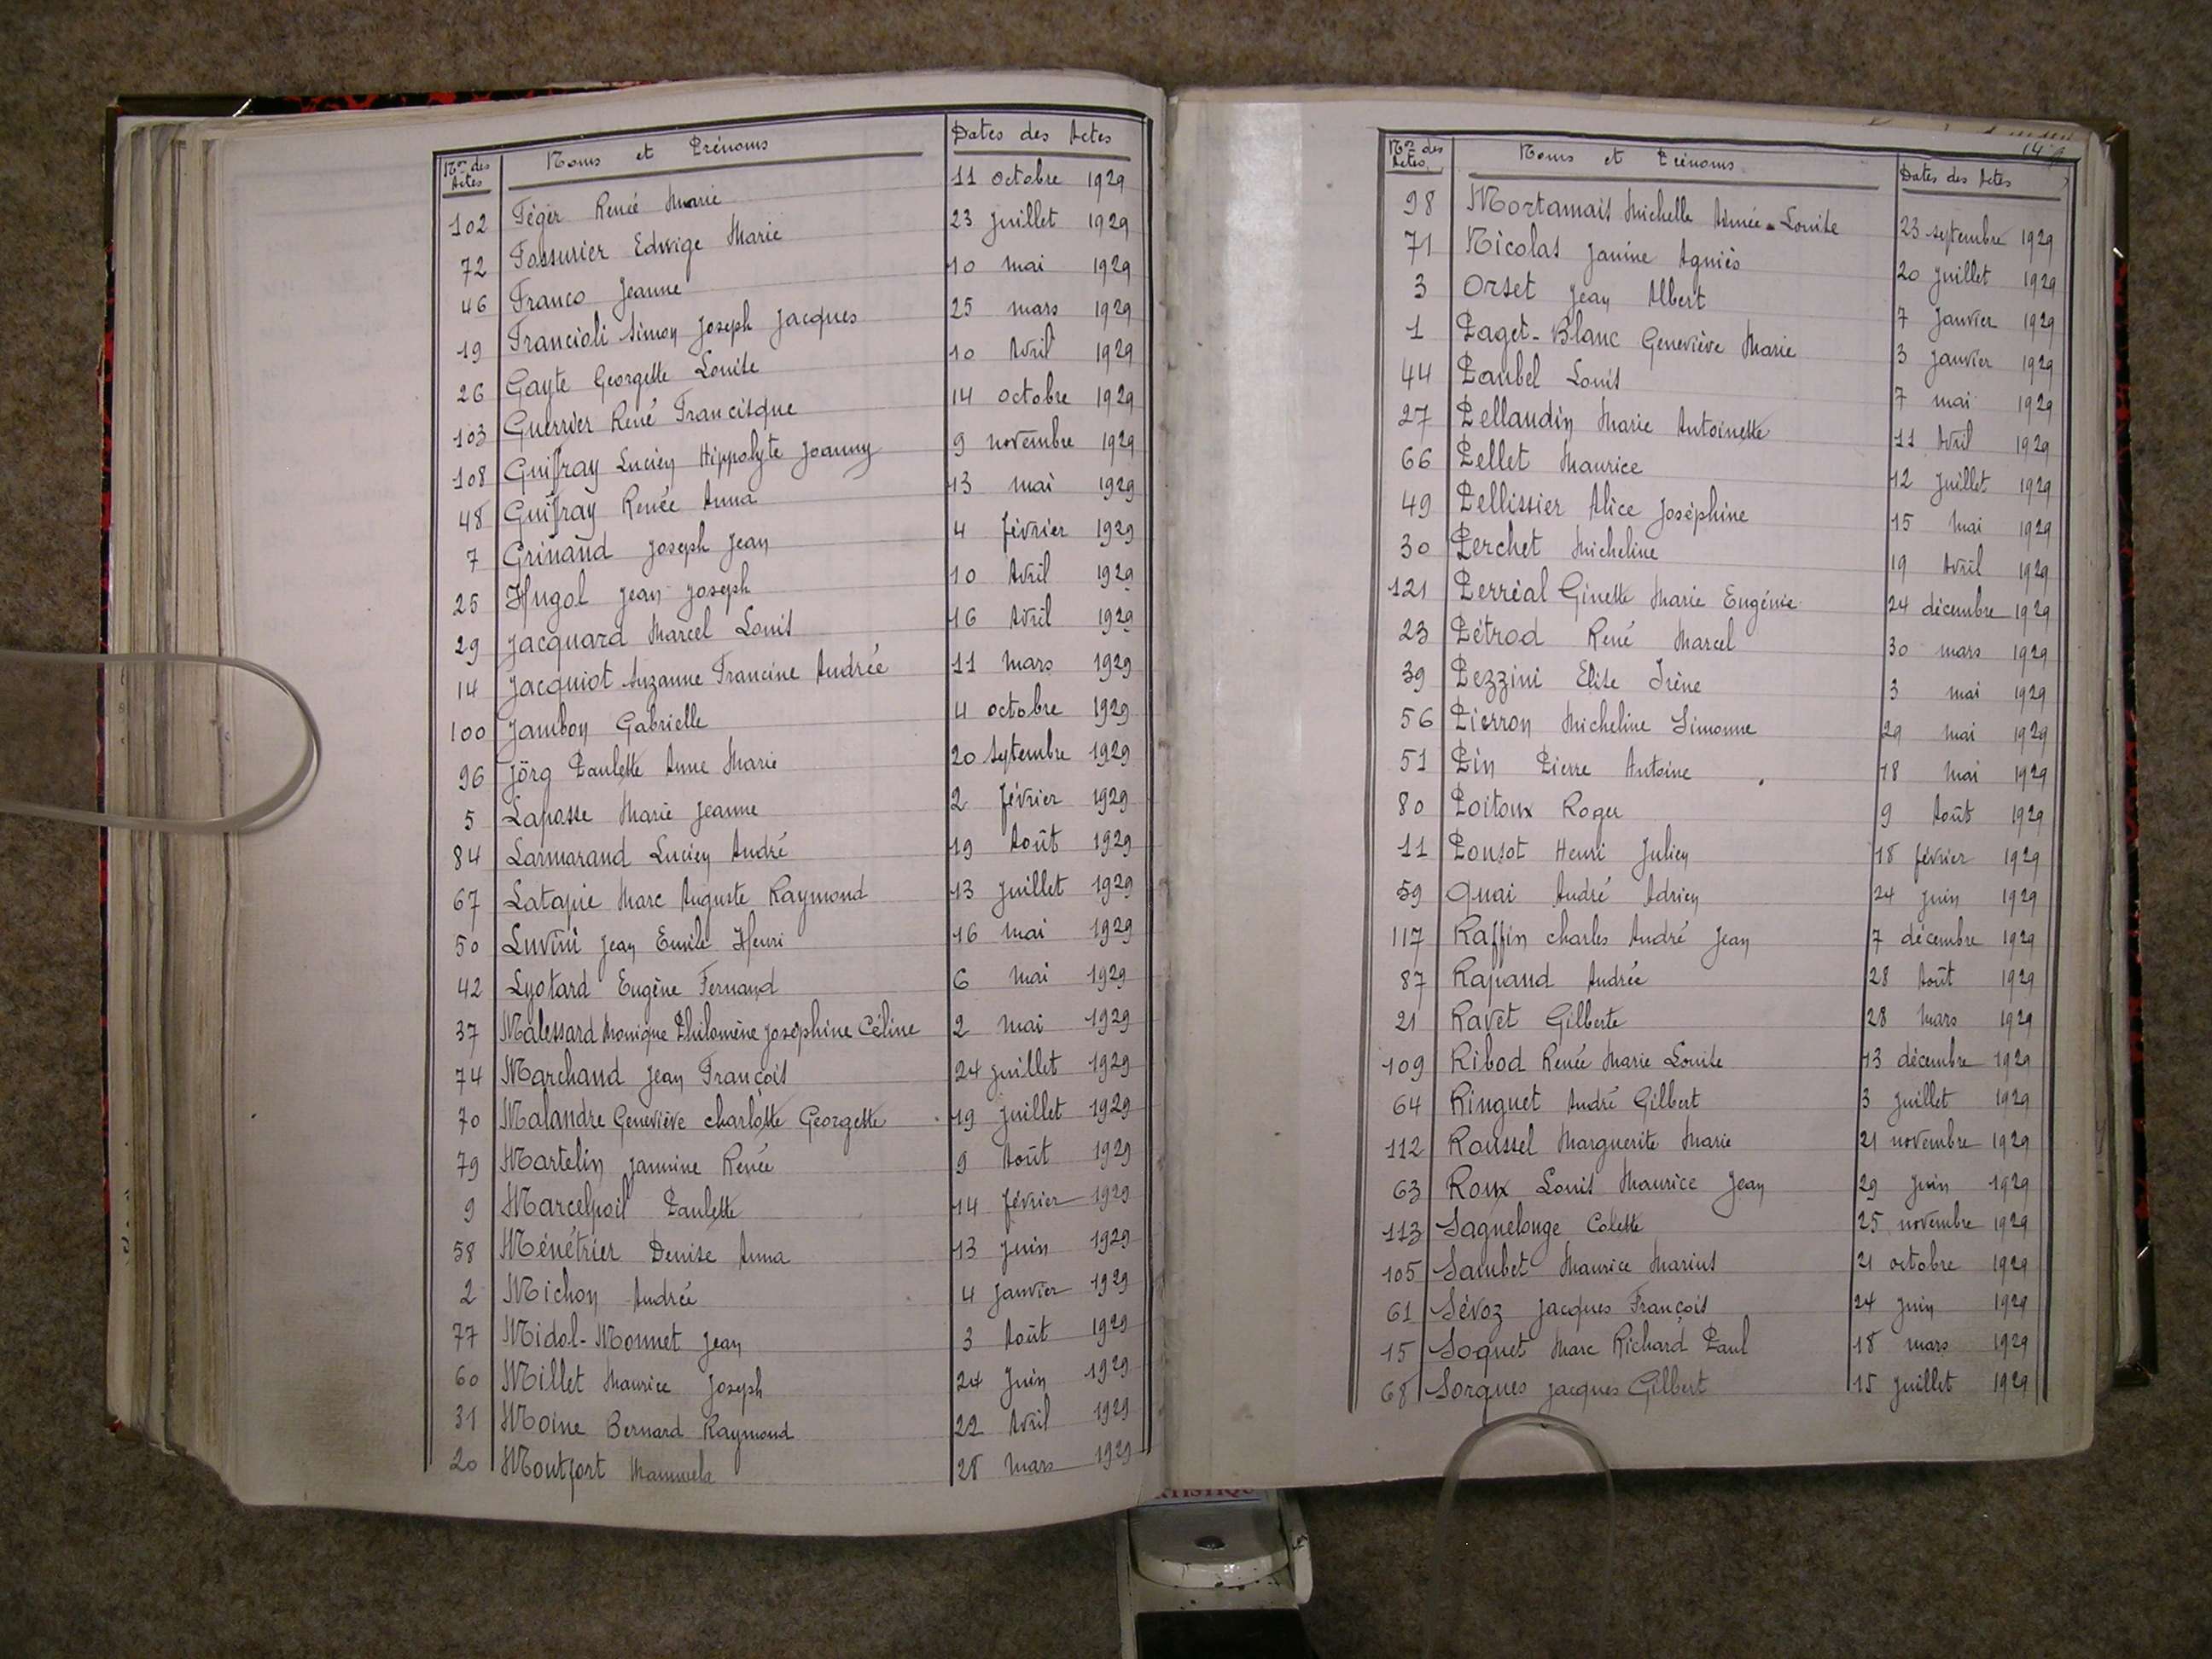 Nos des Actes Noms et Prénoms Dates des Actes
102 Féger Renée Marie 11 octobre 1929
72 Fossurier Edwige Marie 23 juillet 1929
46 Franco Jeanne 10 mai 1929
19 Francioli Simon Joseph Jacques 25 mars 1929
26 Gayte Georgette Louise 10 Avril 1929
103 Guerrier René Francisque 14 octobre 1929
108 Guiffray Lucien Hippolyte Joanny 9 novembre 1929
48 Guiffray Renée Anna 13 mai 1929
7 Grinand Joseph Jean 4 février 1929
25 Hugol Jean Joseph 10 Avril 1929
29 Jacquard Marcel Louis 16 Avril 1929
14 Jacquiot Suzanne Francine Andrée 11 mars 1929
100 Jambon Gabrielle 4 octobre 1929
96 Jörg Paulette Anne Marie 20 Septembre 1929
5 Lafosse Marie Jeanne 2 février 1929
84 Larmarand Lucien André 19 Août 1929
67 Latapie Marc Auguste Raymond 13 juillet 1929
50 Luvini Jean Emile Henri 16 mai 1929
42 Lyotard Eugène Fernand 6 Mai 1929
37 Malessard Monique Philomène Joséphine Céline 2 Mai 1929
74 Marchand Jean François 24 juillet 1929
70 Malandre Geneviève Charlotte Georgette 19 juillet 1929
79 Martelin Jannine Renée 9 Août 1929
9 Marcelpoil Paulette 14 février 1929
58 Ménétrier Denise Anna 13 juin 1929
2 Michon Andrée 4 Janvier 1929
77 Midol-Monnet Jean 3 Août 1929
60 Millet Maurice Joseph 24 Juin 1929
31 Moine Bernard Raymond 22 Avril 1929
20 Montfort Manuela 28 Mars 1929
Nos des Actes Noms et Prénoms Dates des Actes
98 Mortamais Michelle Aimée-Louise 23 septembre 1929
71 Nicolas Janine Agniès 20 juillet 1929
3 Orset Jean Albert 7 Janvier 1929
1 Paget-Blanc Geneviève Marie 3 janvier 1929
44 Paubel Louis 7 mai 1929
27 Pellaudin Marie Antoinette 11 Avril 1929
66 Pellet Maurice 12 Juillet 1929
49 Pellissier Alice Joséphine 15 Mai 1929
30 Perchet Micheline 19 Avril 1929
121 Perréal Ginette Marie Eugénie 24 décembre 1929
23 Pétrod René Marcel 30 mars 1929
39 Pezzini Elise Irène 3 mai 1929
56 Pierron Micheline Simonne 29 mai 1929
51 Pin Pierre Antoine 18 Mai 1929
80 Poitoux Roger 9 Août 1929
11 Ponsot Henri Julien 18 février 1929
59 Quai André Adrien 24 juin 1929
117 Raffin Charles André Jean 7 décembre 1929
87 Rapaud Andrée 28 Août 1929
21 Ravet Gilberte 28 Mars 1929
109 Ribod Renée Marie Louise 13 décembre 1929
64 Ringuet André Gilbert 3 Juillet 1929
112 Roussel Marguerite Marie 21 novembre 1929
63 Roux Louis Maurice Jean 29 Juin 1929
113 Sagnelonge Colette 25 novembre 1929
105 Sambet Maurice Marius 21 octobre 1929
61 Sévoz Jacques François 24 juin 1929
15 Soquet Marc Richard Paul 18 mars 1929
68 Sorques Jacques Gilbert 15 juillet 1929